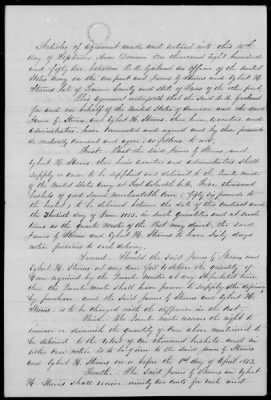 Articles of agreement made and entered into this
day of September Anno Domini One thousand eight hundred
and fifty two between an officer of the United
States Army on the one part and James G. Stevens and Egbert H.
Stevens late of County and State of Texas of the other part,
This Agreement witnesseth that the said
for and on behalf of the United States of America and the said
James G. Stevens and Egbert H. Stevens their heirs, executors and
administrators, have covenanted and agreed and by these presents
do mutually covenant and agree, as follows to wit.
First. That the said James G. Stevens and
Egbert H. Stevens their heirs executors and administrators shall
supply or cause to be supplied and delivered to the Quarter Master
of the United States Army at Fort thousand
bushels of good sound corn (fifty six pounds to
the bushel) to be delivered between the date of this contract and
the day of June 1853. in such quantities and at such
times as the Quarter Master of the Post may direct, the said
James G. Stevens and Egbert H. Stevens to have days
notice previous to each delivery.
Second. Should the said James G. Stevens and
Egbert H. Stevens at any time fail to deliver the quantity of
Corn required by the Quarter Master at any stipulated time
then the Quarter Master shall have power to supply the deficiency
by purchase and the said James G. Stevens and Egbert H.
Stevens, is to be charged with the difference in the cost.
Third. The Quarter Master reserves the right to
increase or diminish the quantity of Corn above mentioned to
be delivered to the extent of One thousand bushels, and in
either case notice is to be given to the said James G. Stevens
and Egbert H. Stevens on or before the 1st day of April 1853.
Fourth. The said James G. Stevens and Egbert
H. Stevens shall receive ninety two cents for each and